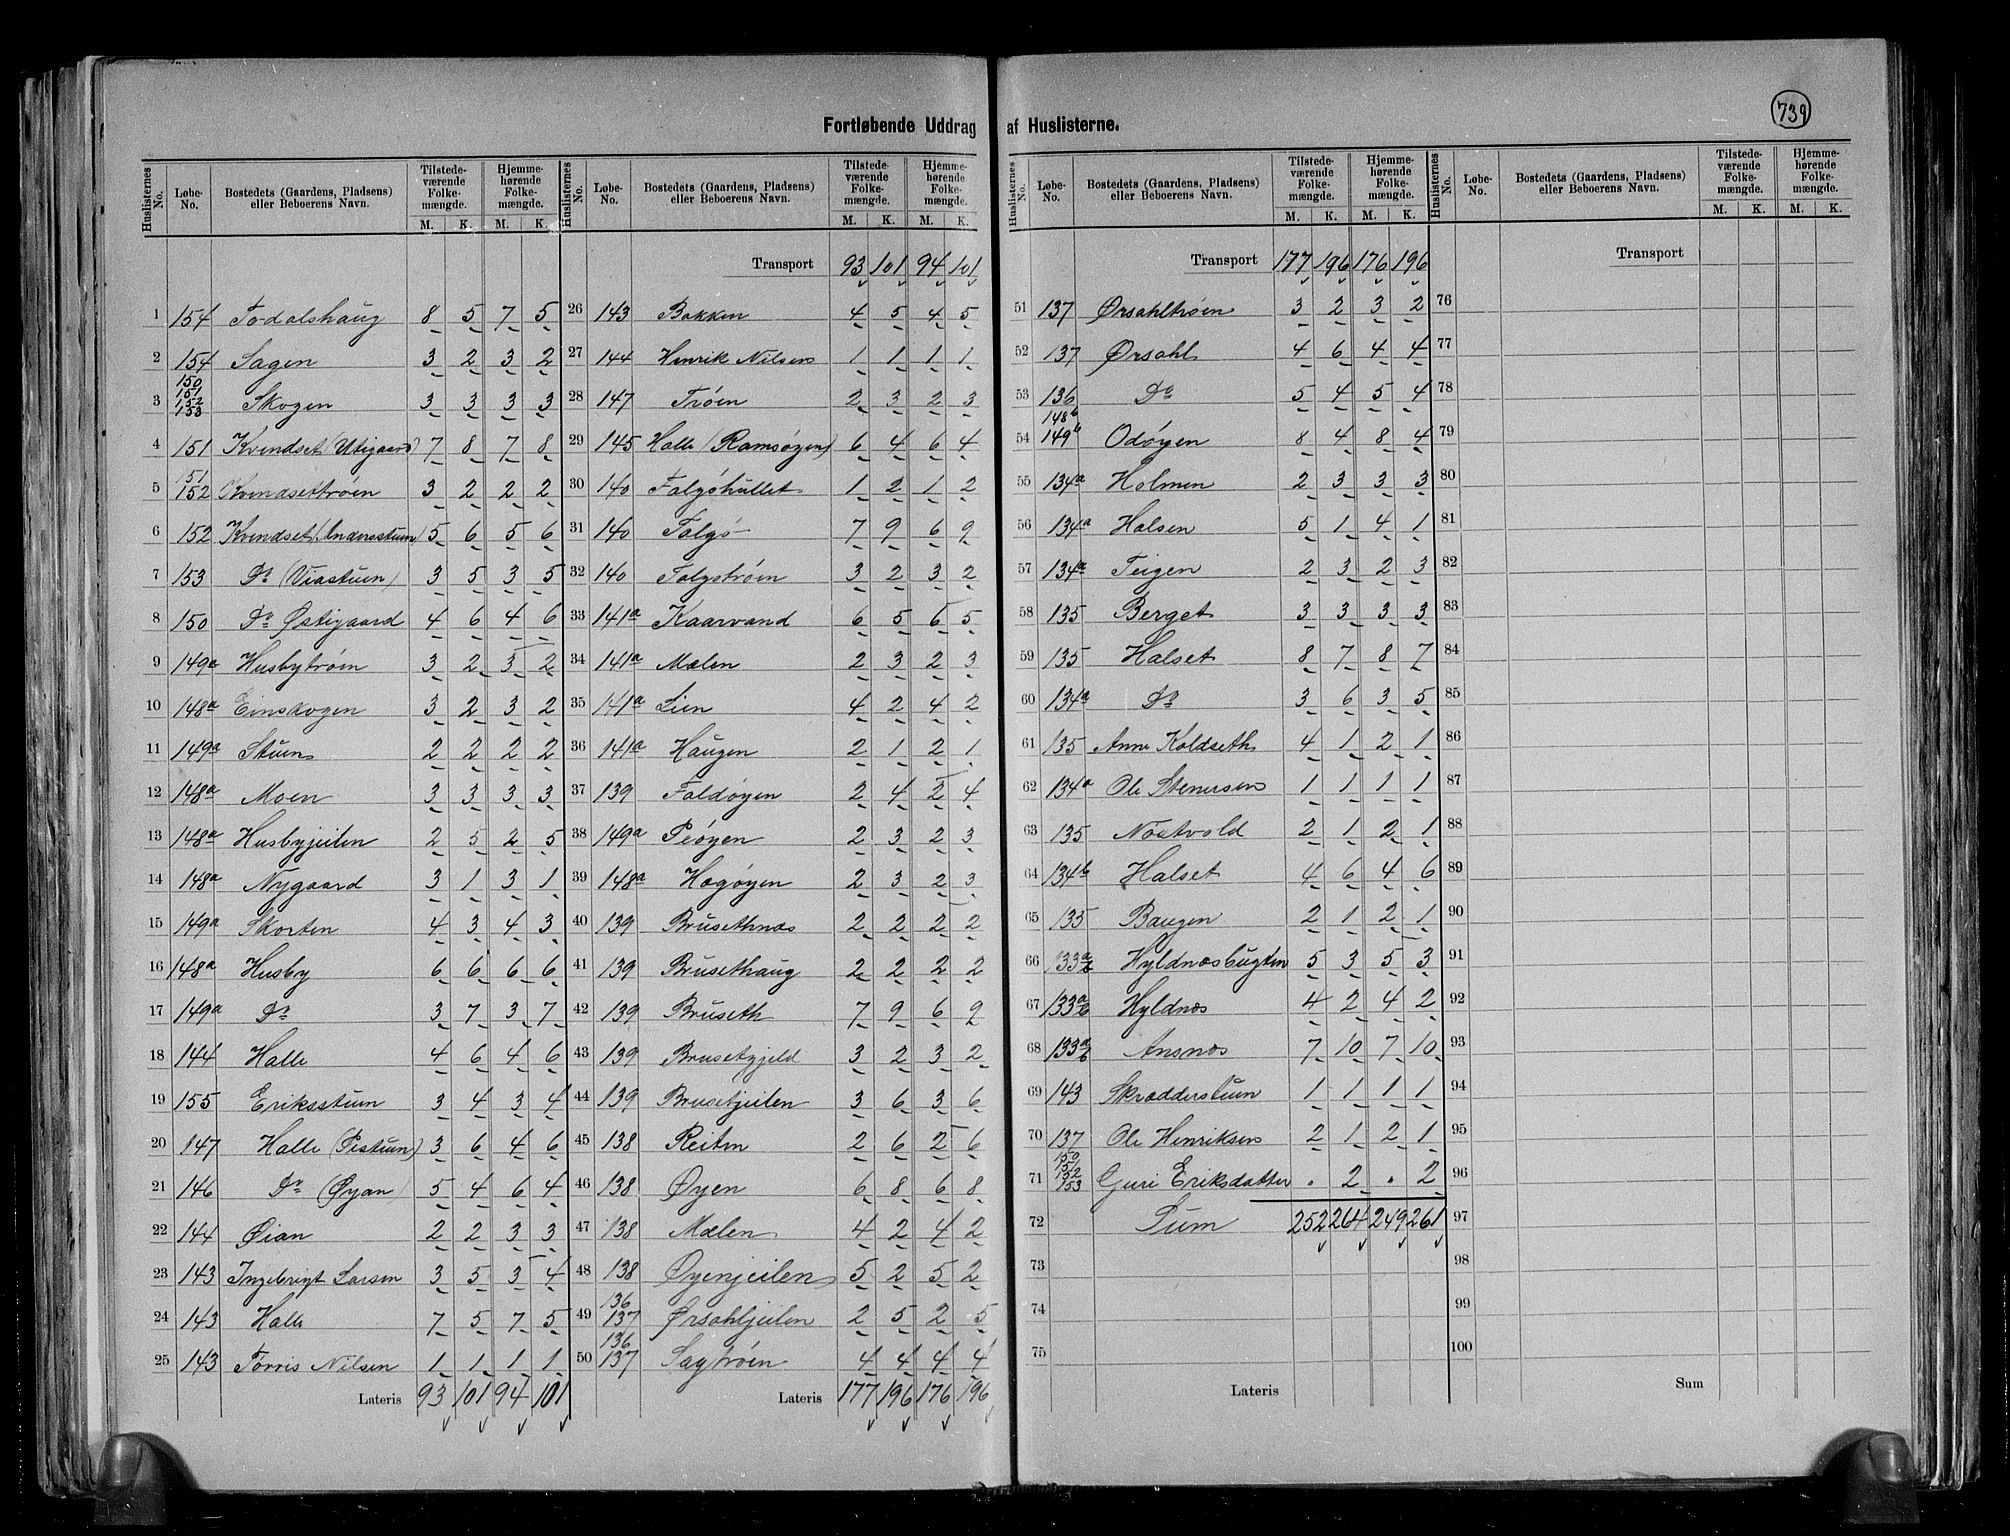 739
Fortløbende Uddrag af Huslisterne.
Huslisternes No. | Løbe-No. | Bostedets (Gaardens, Pladsens) eller Beboerens Navn. | Tilstedeværende Folkemængde. M. K. | Hjemmehørende Folkemængde. M. K.
1 154 Todalshaug 8 5 7 5
2 154 Sagen 3 2 3 2
3 150 151 152 153 Skogen 3 3 3 3
4 151 Kvendset (Utigaard) 7 8 7 8
5 151 152 Kvendsettrøen 3 2 2 2
6 152 Kvendset (Andersstuen) 5 6 5 6
7 153 Do (Viastuen) 3 5 3 5
8 150 Do Østigaard 4 6 4 6
9 149a Husbytrøen 3 2 3 2
10 148a Einskogen 3 2 3 2
11 149a Stuen 2 2 2 2
12 148a Moen 3 3 3 3
13 148a Husbyjeilen 2 5 2 5
14 148a Nygaard 3 1 3 1
15 149a Skorten 4 3 4 3
16 148a Husby 6 6 6 6
17 149a Do 3 7 3 7
18 144 Halle 4 6 4 6
19 155 Eriksstuen 3 4 3 4
20 147 Halle (Pestuen) 3 6 4 6
21 146 Do (Øyan) 5 4 6 4
22 144 Øian 2 2 3 3
23 143 Ingebrigt Larsen 3 5 3 4
24 143 Halle 7 5 7 5
25 143 Torris Nilsen 1 1 1 1
Lateris 93 101 94 101
Huslisternes No. | Løbe-No. | Bostedets (Gaardens, Pladsens) eller Beboerens Navn. | Tilstedeværende Folkemængde. M. K. | Hjemmehørende Folkemængde. M. K.
Transport 93 101 94 101
26 143 Bakken 4 5 4 5
27 144 Henrik Nilsen 1 1 1 1
28 147 Trøen 2 3 2 3
29 145 Halle (Ramsøyen) 6 4 6 4
30 140 Talgøhullet 1 2 1 2
31 140 Talgø 7 9 6 9
32 140 Talgøtrøen 3 2 3 2
33 141a Kaarvand 6 5 6 5
34 141a Mælen 2 3 2 3
35 141a Lien 4 2 4 2
36 141a Haugen 2 1 2 1
37 139 Foldøyen 2 4 2 4
38 149a Peøyen 2 3 2 3
39 148a Hogøyen 2 3 2 3
40 139 Brusethnæs 2 2 2 2
41 139 Brusethaug 2 2 2 2
42 139 Bruseth 7 9 6 9
43 139 Brusetgjeld 3 2 3 2
44 139 Brusetjeilen 3 6 3 6
45 138 Reiten 2 6 2 6
46 138 Øyen 6 8 6 8
47 138 Mælen 4 2 4 2
48 138 Øyenjeilen 5 2 5 2
49 136 137 Ørsahljeilen 2 5 2 5
50 136 137 Sagtrøen 4 4 4 4
Lateris 177 196 176 196
Huslisternes No. | Løbe-No. | Bostedets (Gaardens, Pladsens) eller Beboerens Navn. | Tilstedeværende Folkemængde. M. K. | Hjemmehørende Folkemængde. M. K.
Transport 177 196 176 196
51 137 Ørsahltrøen 3 2 3 2
52 137 Ørsahl 4 6 4 4
53 136 Do 5 4 5 4
54 148b 149b Odøyen 8 4 8 4
55 134a Holmen 2 3 3 3
56 134a Halsen 5 1 4 1
57 134a Teigen 2 3 2 3
58 135 Berget 3 3 3 3
59 135 Halset 8 7 8 7
60 134a Do 3 6 3 5
61 135 Anne Koldseth 4 1 2 1
62 134a Ole Stenersen 1 1 1 1
63 135 Nøstvold 2 1 2 1
64 134b Halset 4 6 4 6
65 135 Baugen 2 1 2 1
66 133a b Hyldnæsbugten 5 3 5 3
67 133a b Hyldnæs 4 2 4 2
68 133a b Ansnæs 7 10 7 10
69 143 Skrædderstuen 1 1 1 1
70 137 Ole Henriksen 2 1 2 1
71 150 151 152 153 Guri Eriksdatter . 2 . 2
72 Sum 252 264 249 261
73
74
75
Lateris
Huslisternes No. | Løbe-No. | Bostedets (Gaardens, Pladsens) eller Beboerens Navn. | Tilstedeværende Folkemængde. M. K. | Hjemmehørende Folkemængde. M. K.
Transport
76
77
78
79
80
81
82
83
84
85
86
87
88
89
90
91
92
93
94
95
96
97
98
99
100
Sum